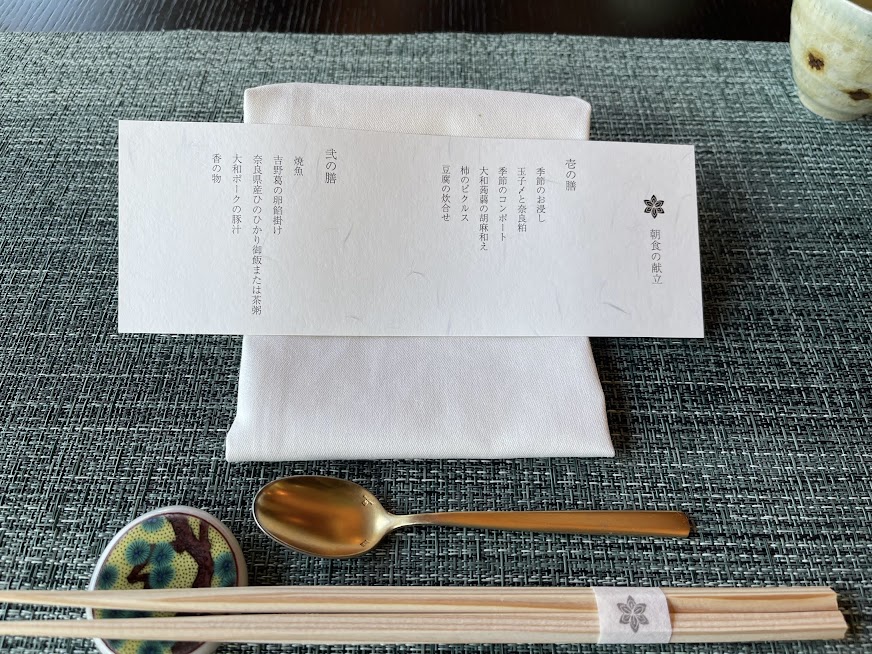 朝食の献立
壱の膳
季節のお浸し
玉子〆と奈良粕
季節のコンポート
大和蒟蒻の胡麻和え
柿のピクルス
豆腐の炊合せ
弐の膳
焼魚
吉野葛の卵餡掛け
奈良県産ひのひかり御飯または茶粥
大和ポークの豚汁
香の物